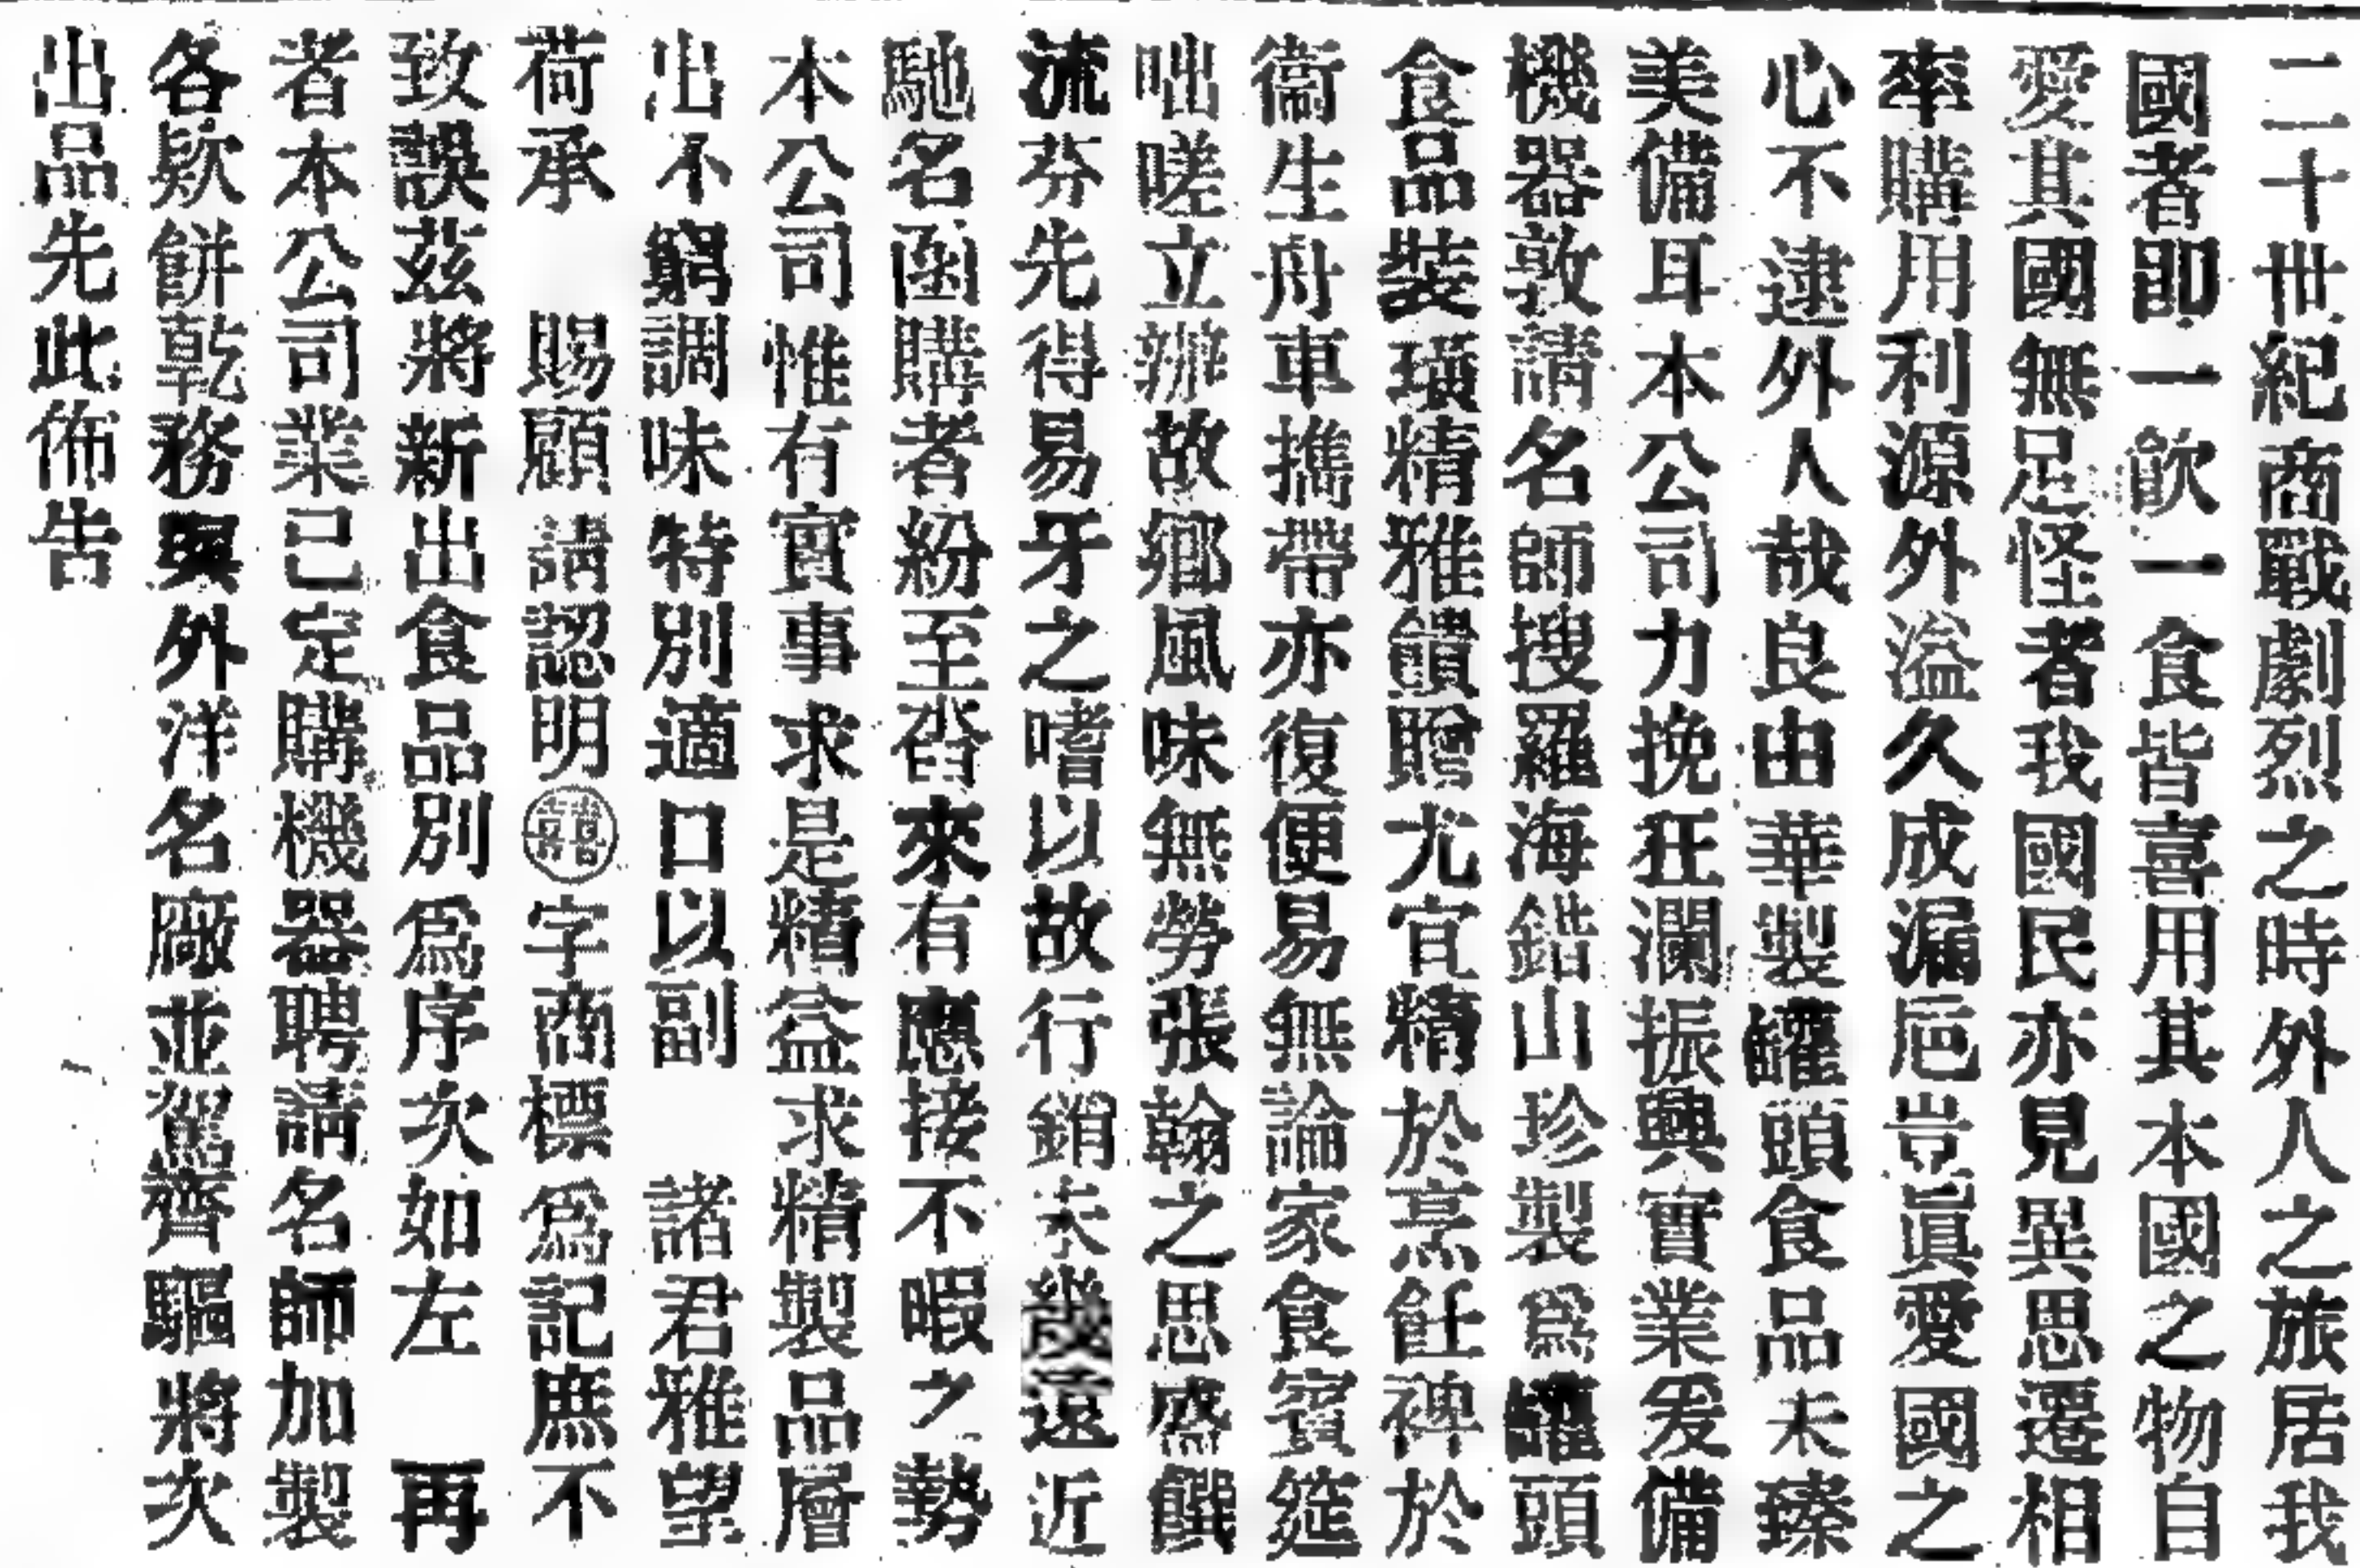 二十世紀商戰劇烈之時外人之旅居我
國者卽一飮一食皆喜用其本國之物自
愛其國無足怪者我國民亦見異思遷相
率購用利源外溢久成漏巵豈眞愛國之
心不逮外人哉良由華製罐頭食品未臻
美備耳本公司力挽狂瀾振興實業爰備
機器敦請名師搜羅海錯山珍製爲罐頭
食品裝璜精雅饋贈尤宜精於烹飪裨於
衞生舟車攜帶亦復便易無論家食賓筵
咄嗟立辦故鄕風味無勞張翰之思盛饌
流芬先得易牙之嗜以故行銷未幾遠近
馳名函購者紛至沓來有應接不暇之勢
本公司惟有實事求是精益求精製品層
出不窮調味特別適口以副 諸君雅望
荷承 賜顧請認明囍字商標爲記庶不
致誤茲將新出食品別爲序次如左 再
者本公司業已定購機器聘請名師加製
各欵餅乾務與外洋名廠並駕齊驅將次
出品先此佈告